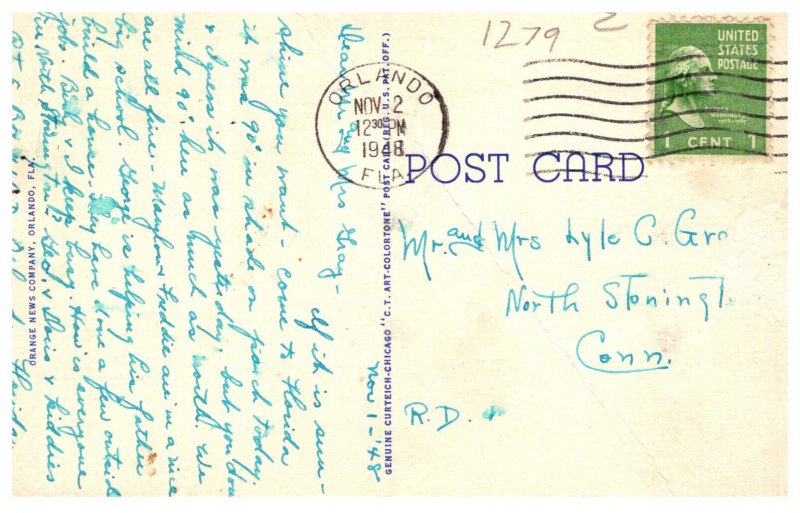 1279 2
UNITED
STATES
POSTAGE
1 CENT 1
ORLANDO
NOV 2
12 30 PM
1948
FLA.
POST CARD
Mr. and Mrs Lyle C. Gra
North Stoningt
Conn.
R.D.
GENUINE CURTEICH-CHICAGO "C.T. ART-COLORTONE" POST CARD (REG. U.S. PAT. OFF.)
ORANGE NEWS COMPANY, ORLANDO, FLA.
Nov-1-'48
Dear Mr and Mrs Gray-
If it is sun-
shine you want - come to Florida
it was 90° in shade on porch today.
& I guess it was yesterday but you don
mind 90° here as much as north. We
are all fine - & Freddie are in a nice
big school. George is helping his father
build a house. They have done a few outside
jobs. Bill & I keep busy. How is everyone
in North Stonington? & Doris & kiddies
Florida.